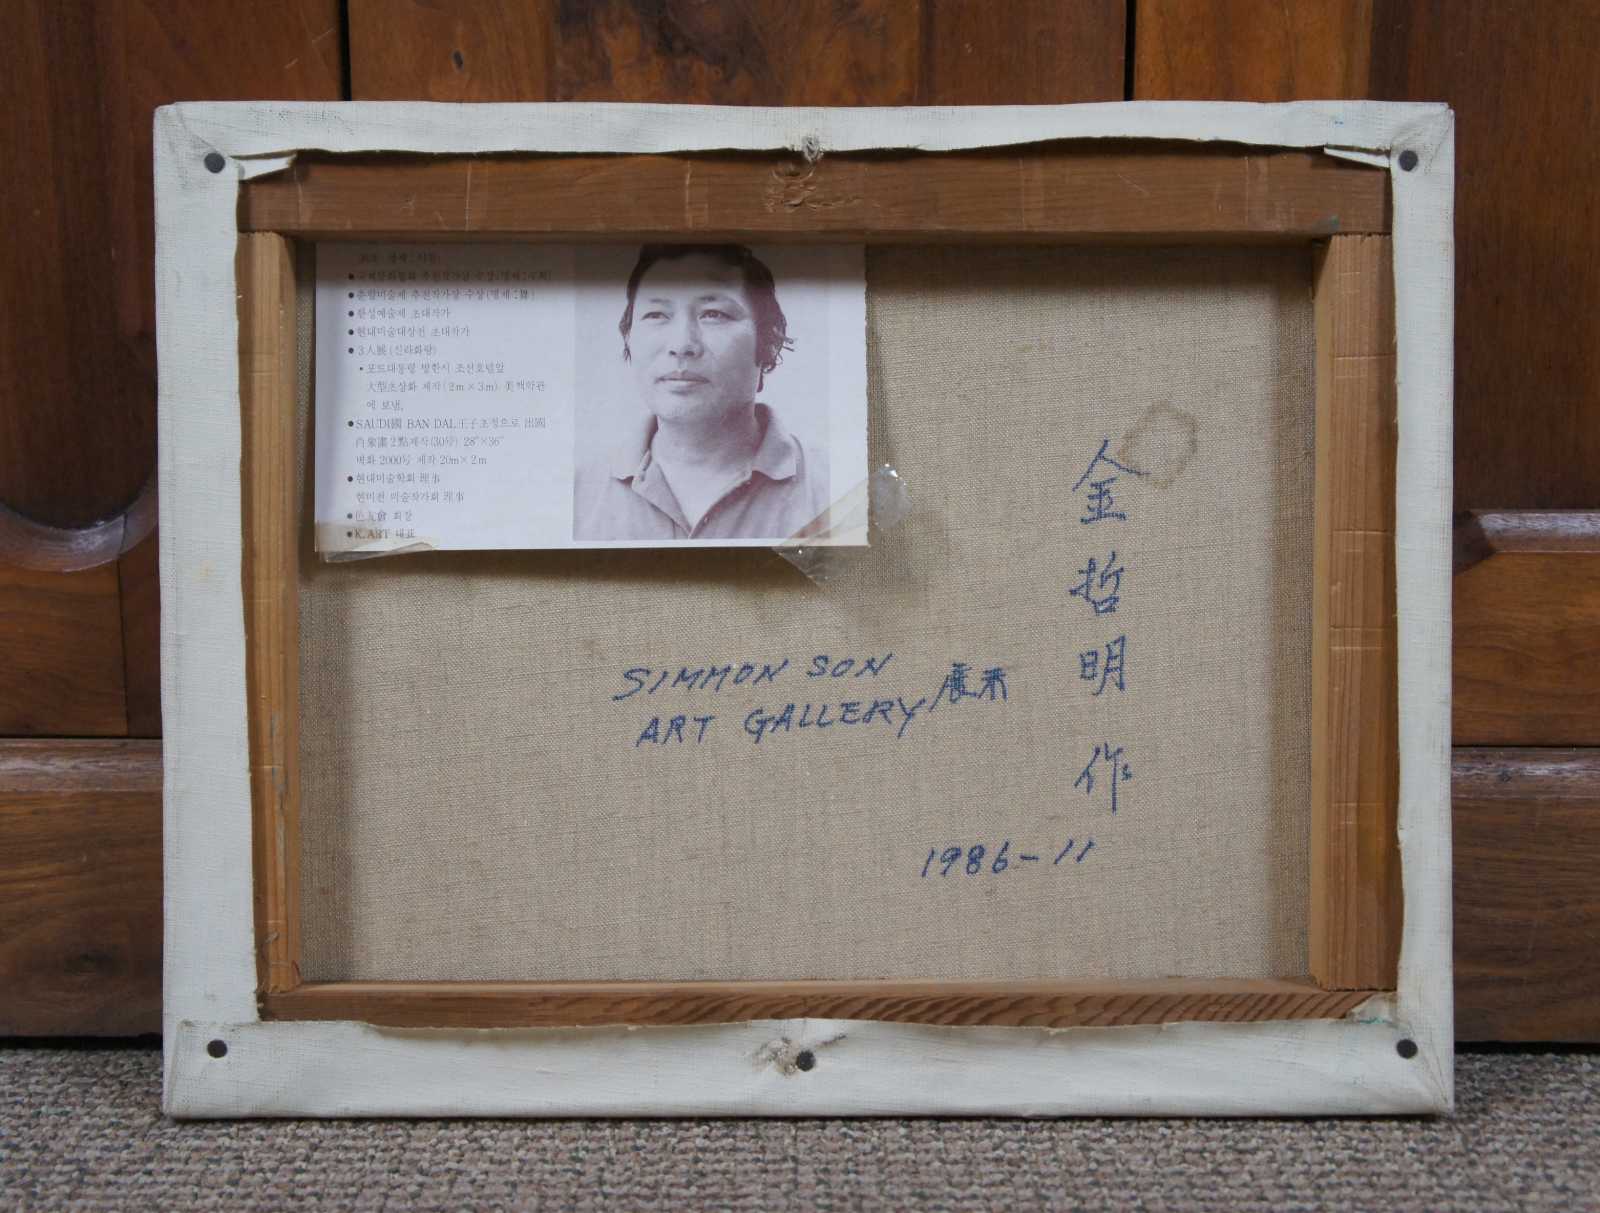 추천작가상 수상(명제:
춘향미술제 추천작가상 수상(명제:舞)
한성예술제 초대작가
현대미술대상전 초대작가
3人展(신라화랑)
포드대통령 방한시 조선호텔앞
大型초상화 제작(2m×3m) 美백악관
에 보냄.
SAUDI國 BAN DAL王子초청으로 出國
肖象畫2點제작(30号) 28"×36"
벽화 2000号 제작 20m×2m
현대미술학회 理事
현미전 미술작가회 理事
色友會 회장
K.ART 대표
SIMMON SON
ART GALLERY 展示
金哲明作
1986-11